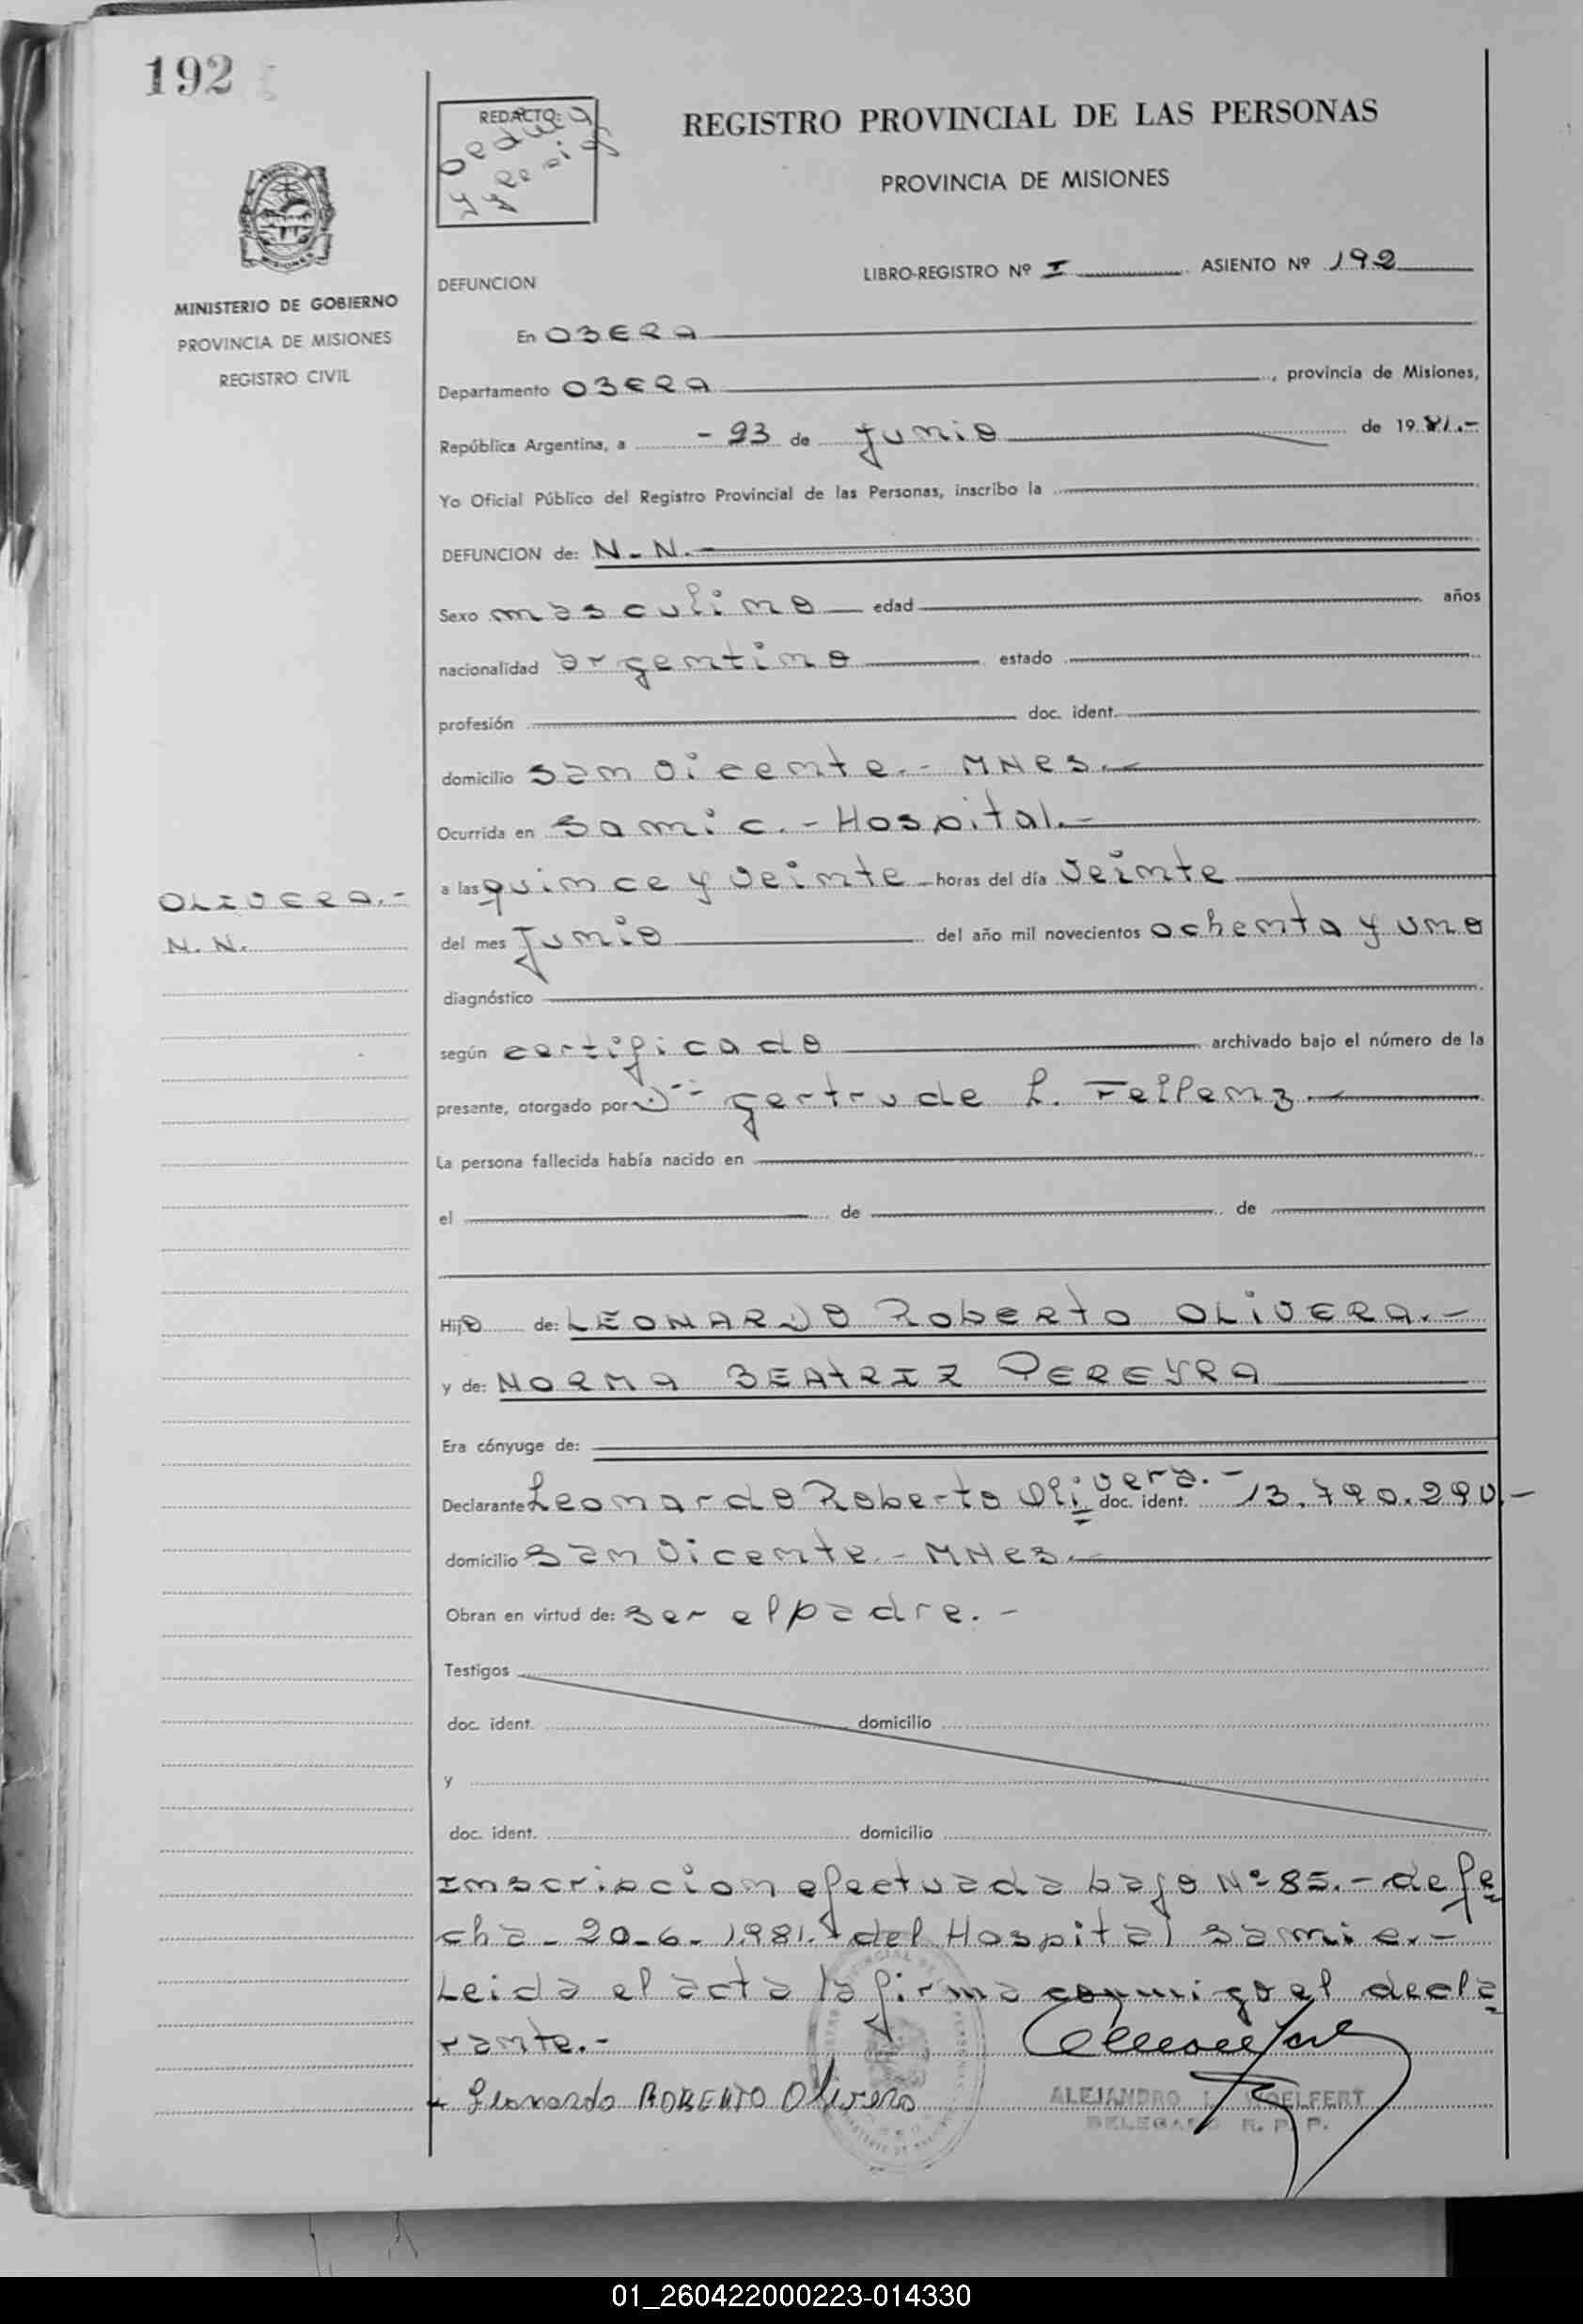 192
REDACTO:
REGISTRO PROVINCIAL DE LAS PERSONAS
PROVINCIA DE MISIONES
MISIONES
MINISTERIO DE GOBIERNO
PROVINCIA DE MISIONES
REGISTRO CIVIL
DEFUNCION
LIBRO-REGISTRO Nº I ASIENTO Nº 192
En OBERA
Departamento OBERA, provincia de Misiones,
República Argentina, a - 23 de Junio de 1981.-
Yo Oficial Público del Registro Provincial de las Personas, inscribo la
DEFUNCION de: N-N.-
Sexo masculino edad años
nacionalidad argentino estado
profesión doc. ident.
domicilio San Vicente.- MNES.-
Ocurrida en Samic.- Hospital.-
a las quince y veinte horas del día veinte
OLIVERA.-
N.N.
del mes Junio del año mil novecientos ochenta y uno
diagnóstico
según certificado archivado bajo el número de la
presente, otorgado por Gertrude L. Fellenz.-
La persona fallecida había nacido en
el de de
Hijo de: LEONARDO ROBERTO OLIVERA.-
y de: NORMA BEATRIZ PEREYRA
Era cónyuge de:
Declarante Leonardo Roberto Olivera.- doc. ident. 13.790.290.-
domicilio San Vicente.- MNES.-
Obran en virtud de: ser el padre.-
Testigos
doc. ident. domicilio
y
doc. ident. domicilio
Inscripcion efectuada bajo Nº 85.- de fe
cha - 20-6-1981.- del Hospital Samic.-
Leida el acta la firma conmigo el decla
rante.-
Leonardo ROBERTO Olivera
ALEJANDRO
DELEGADO R. P. P.
01_260422000223-014330